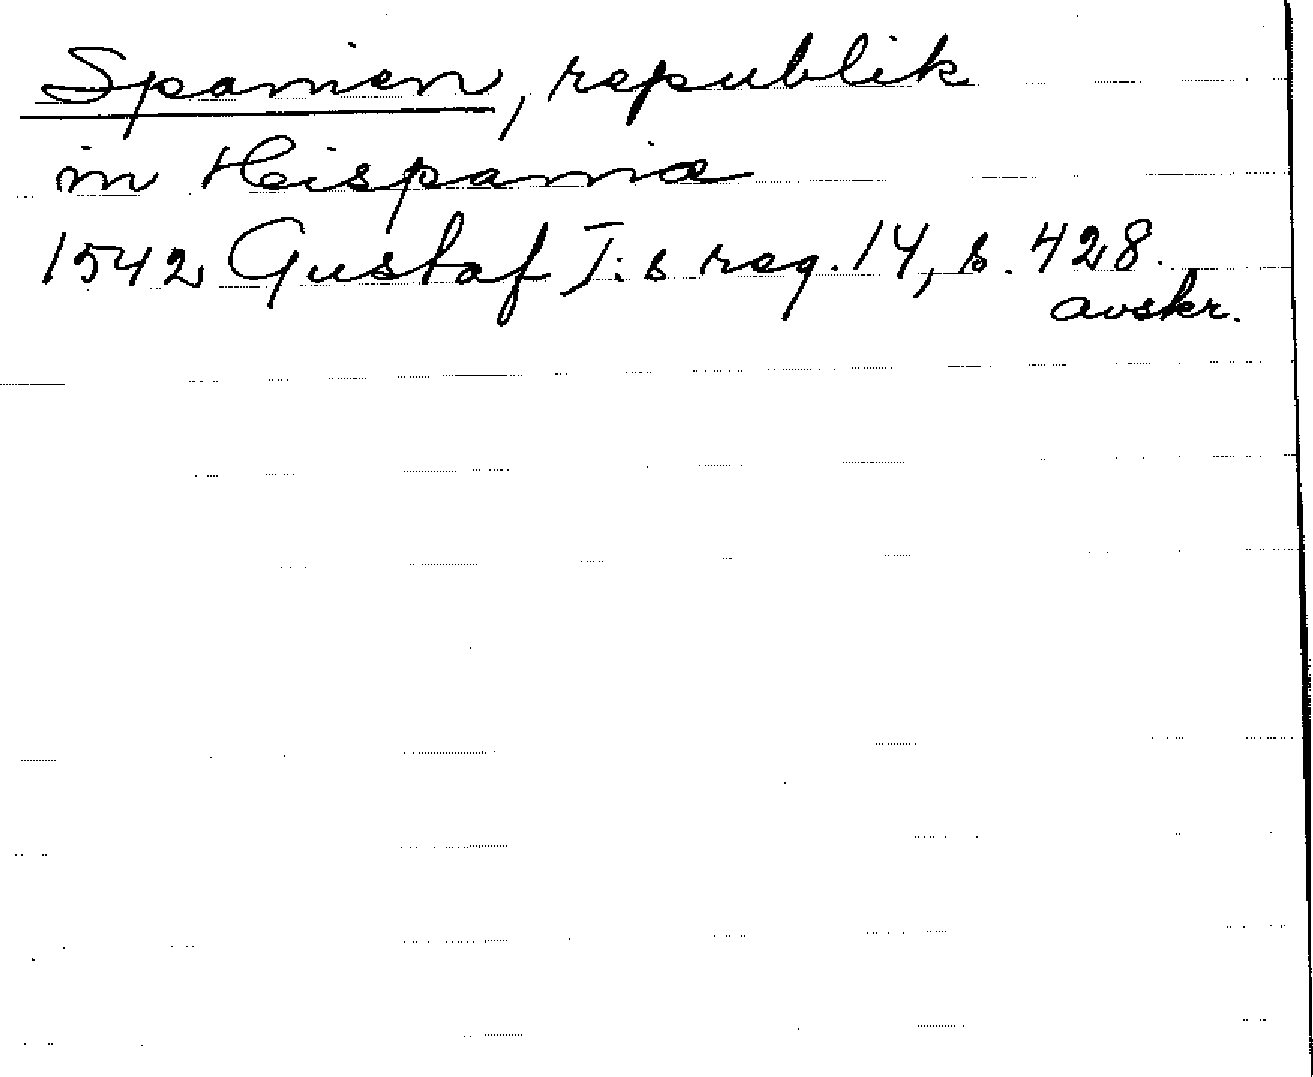 Spanien, republik
in Heispania
1542 Gustaf I:s reg. 14, s. 428.
avskr.